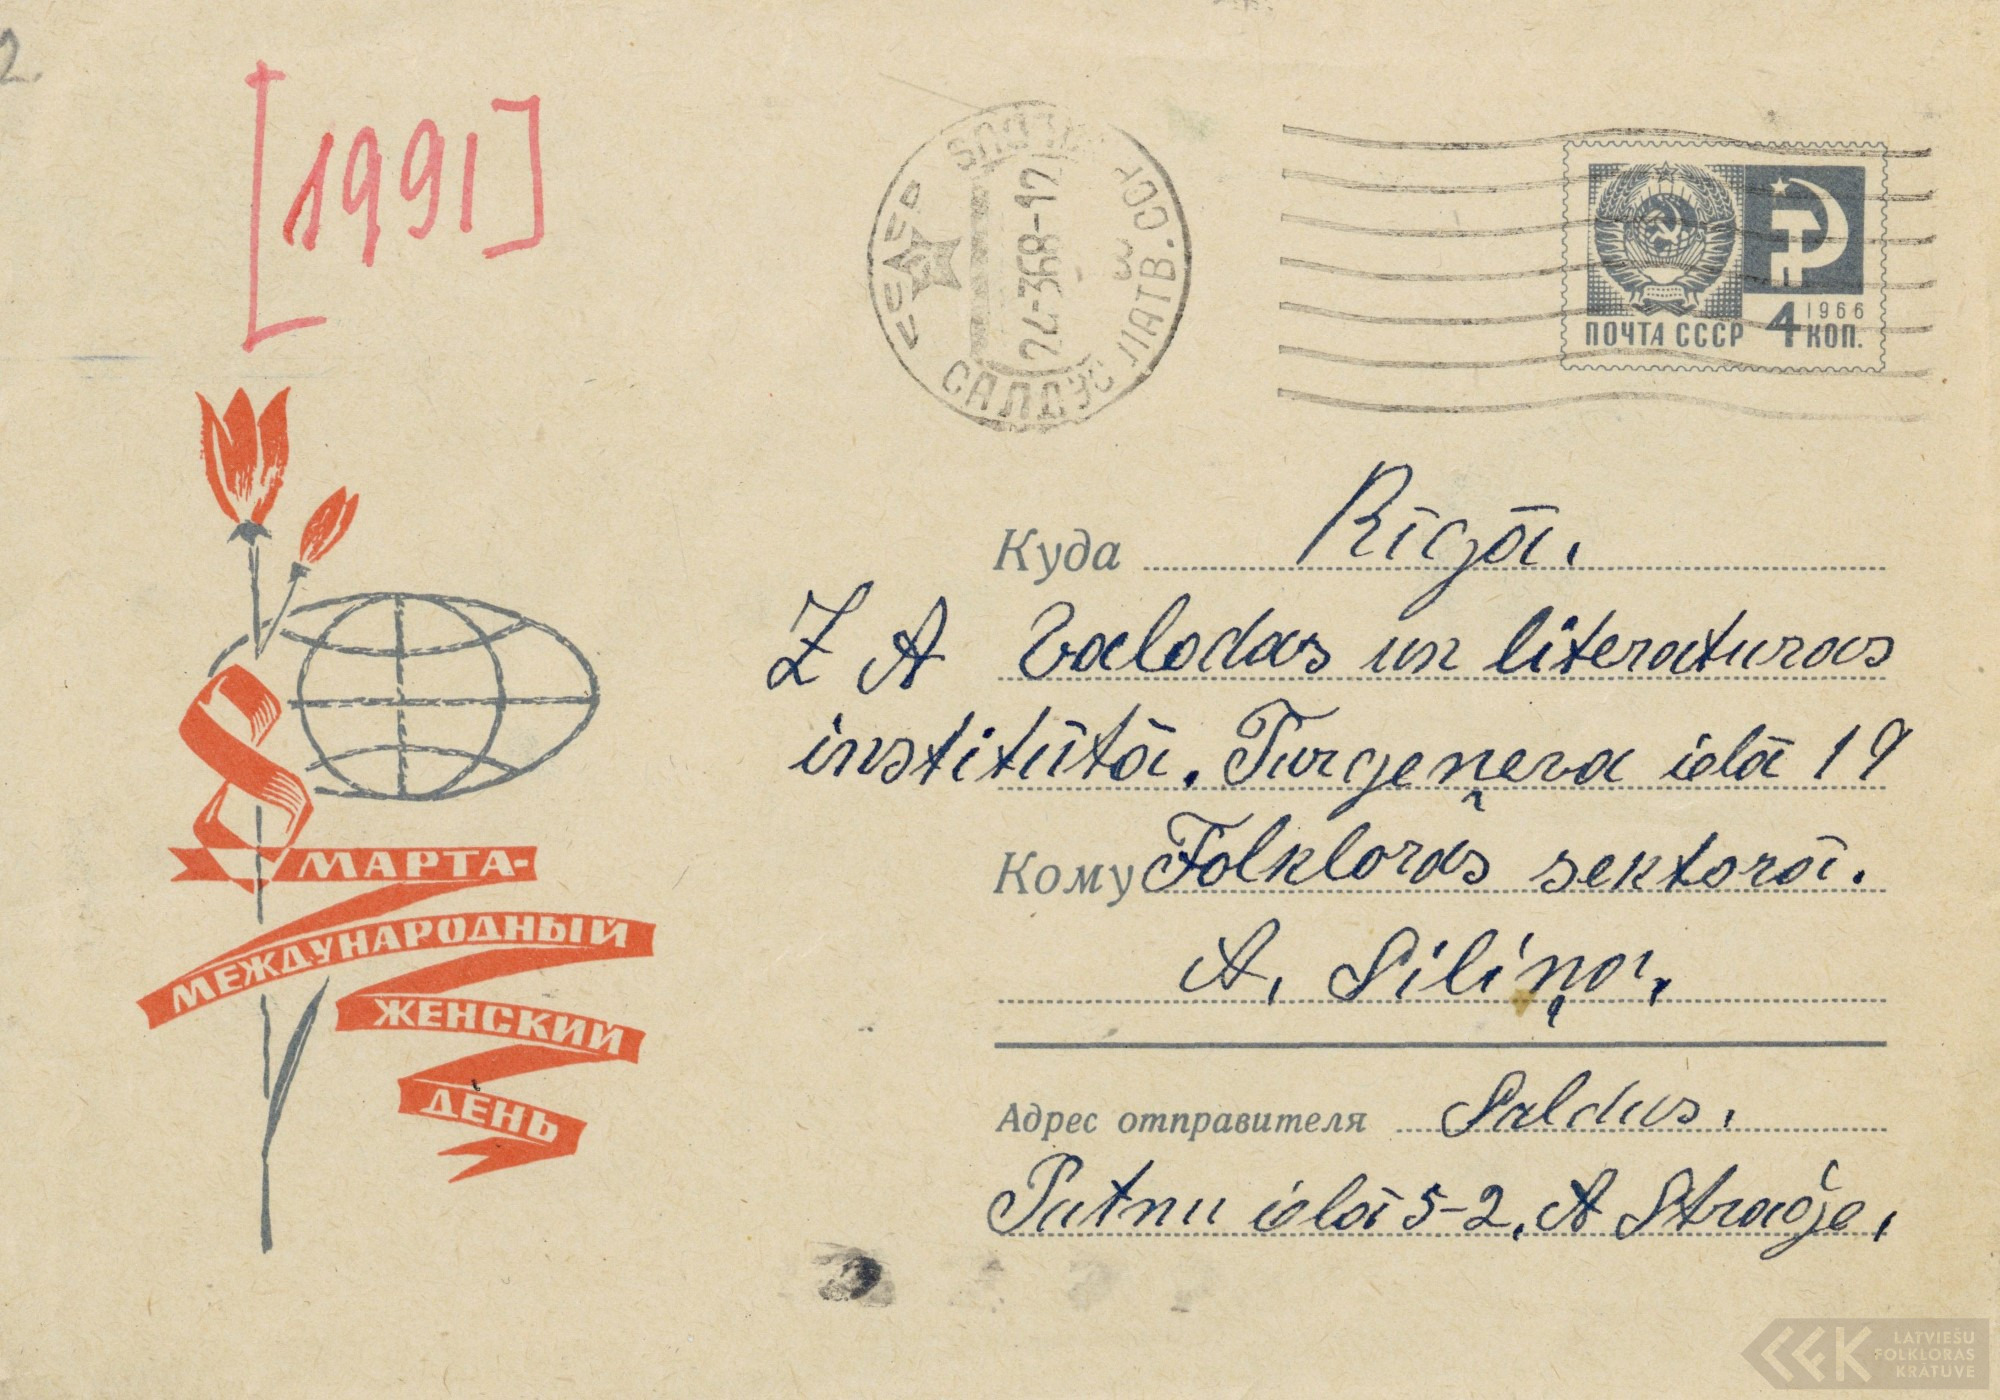 2.
[1991]
SALDUS
СССР
24-3 68-12
З
САЛДУС ЛАТВ. ССР
1966
ПОЧТА СССР 4 КОП.
Куда Rīgā.
Z A Valodas un literaturas
institūtā. Turgeņeva ielā 19
Кому Folkloras sektorā.
A. Siliņa.
8 МАРТА-
МЕЖДУНАРОДНЫЙ
ЖЕНСКИЙ
ДЕНЬ
Адрес отправителя Saldus.
Putnu ielā 5-2, A Straője.
LATVIEŠU
FOLKLORAS
KRĀTUVE